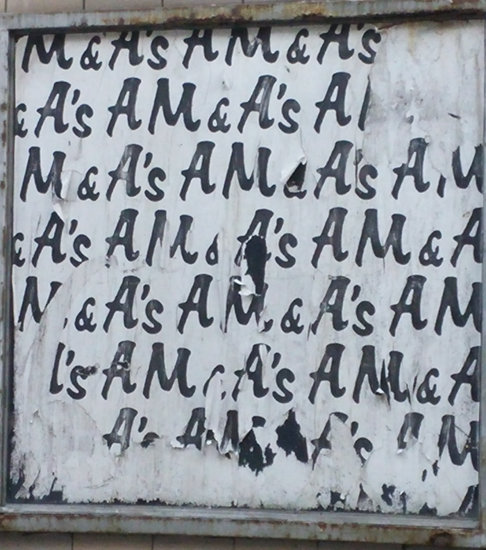 M & A's AM & A's
& A's AM & A's A
M & A's AM & A's A
& A's AM & A's AM & A
& A's AM & A's AM
's AM A's AM & A
A's A A's M